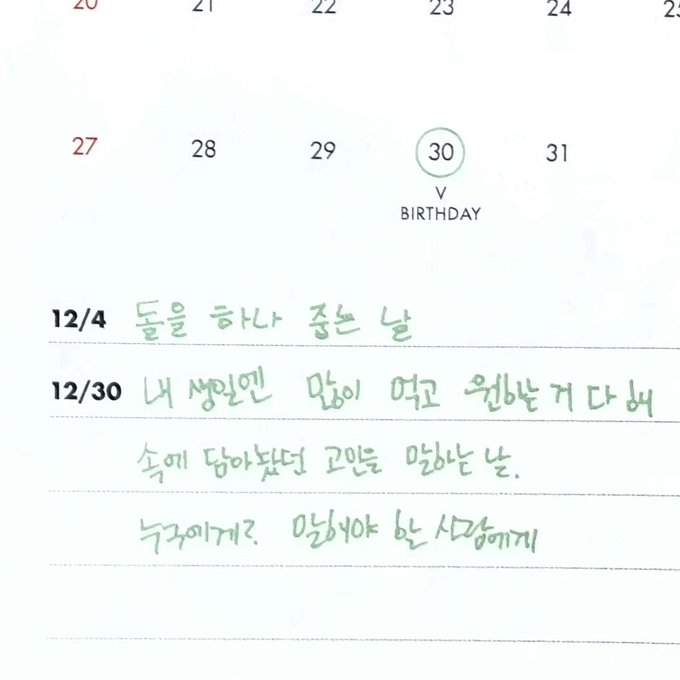 20 21 22 23 24 25
27 28 29 30 31
V
BIRTHDAY
12/4 돌을 하나 줍는 날
12/30 내 생일엔 많이 먹고 원하는 거 다 해
속에 담아놨던 고민을 말하는 날.
누구에게? 말해야 할 사람에게